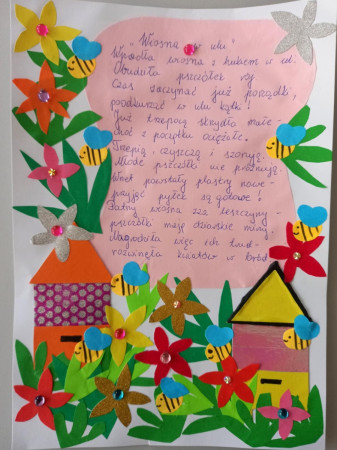 „Wiosna w ulu"
Wpadła wiosna z hukiem w ul.
Obudziła pszczółek rój
Czas zaczynać już porządki,
poodkurzać w ulu kątki!
Już trzepią skrzydła małe
choć z początku ociężałe.
Trzepią, czyszczą i szorują.
Młode pszczółki nie próżnują.
Wnet powstały plastry nowe
przyjąć pyłek są gotowe!
Patrzy wiosna zza leszczyny
pszczółki mają dziarskie miny.
Nagrodziła więc ich trud
rozwinęła kwiatów w bród